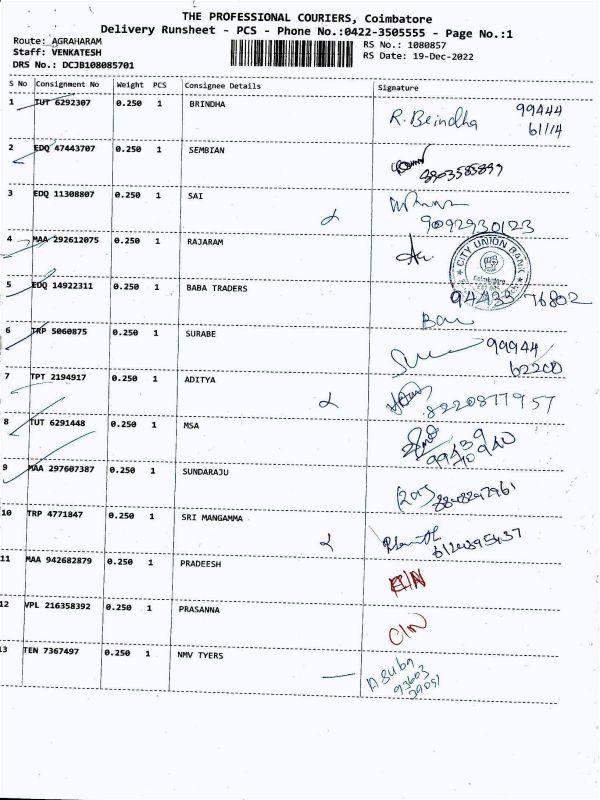 THE PROFESSIONAL COURIERS, Coimbatore
Delivery Runsheet - PCS - Phone No.:0422-3505555 - Page No.:1
Route: AGRAHARAM
Staff: VENKATESH
DRS No.: DCJB108085701
RS No.: 1080857
RS Date: 19-Dec-2022
S No Consignment No Weight PCS Consignee Details Signature
1 TUT 6292307 0.250 1 BRINDHA R. Beindha 99444
61114
2 EDQ 47443707 0.250 1 SEMBIAN
3 EDQ 11308807 0.250 1 SAI
9092930123
4 MAA 292612075 0.250 1 RAJARAM
CITY UNION BANK
Coimbatore
5 EDQ 14922311 0.250 1 BABA TRADERS 76802
6 TRP 5060875 0.250 1 SURABE 99944
62200
7 TPT 2194917 0.250 1 ADITYA
8220877957
8 TUT 6291448 0.250 1 MSA
9 MAA 297607387 0.250 1 SUNDARAJU
10 TRP 4771847 0.250 1 SRI MANGAMMA
11 MAA 942682879 0.250 1 PRADEESH
12 VPL 216358392 0.250 1 PRASANNA C/N
13 TEN 7367497 0.250 1 NMV TYERS A Suba
93603
29051